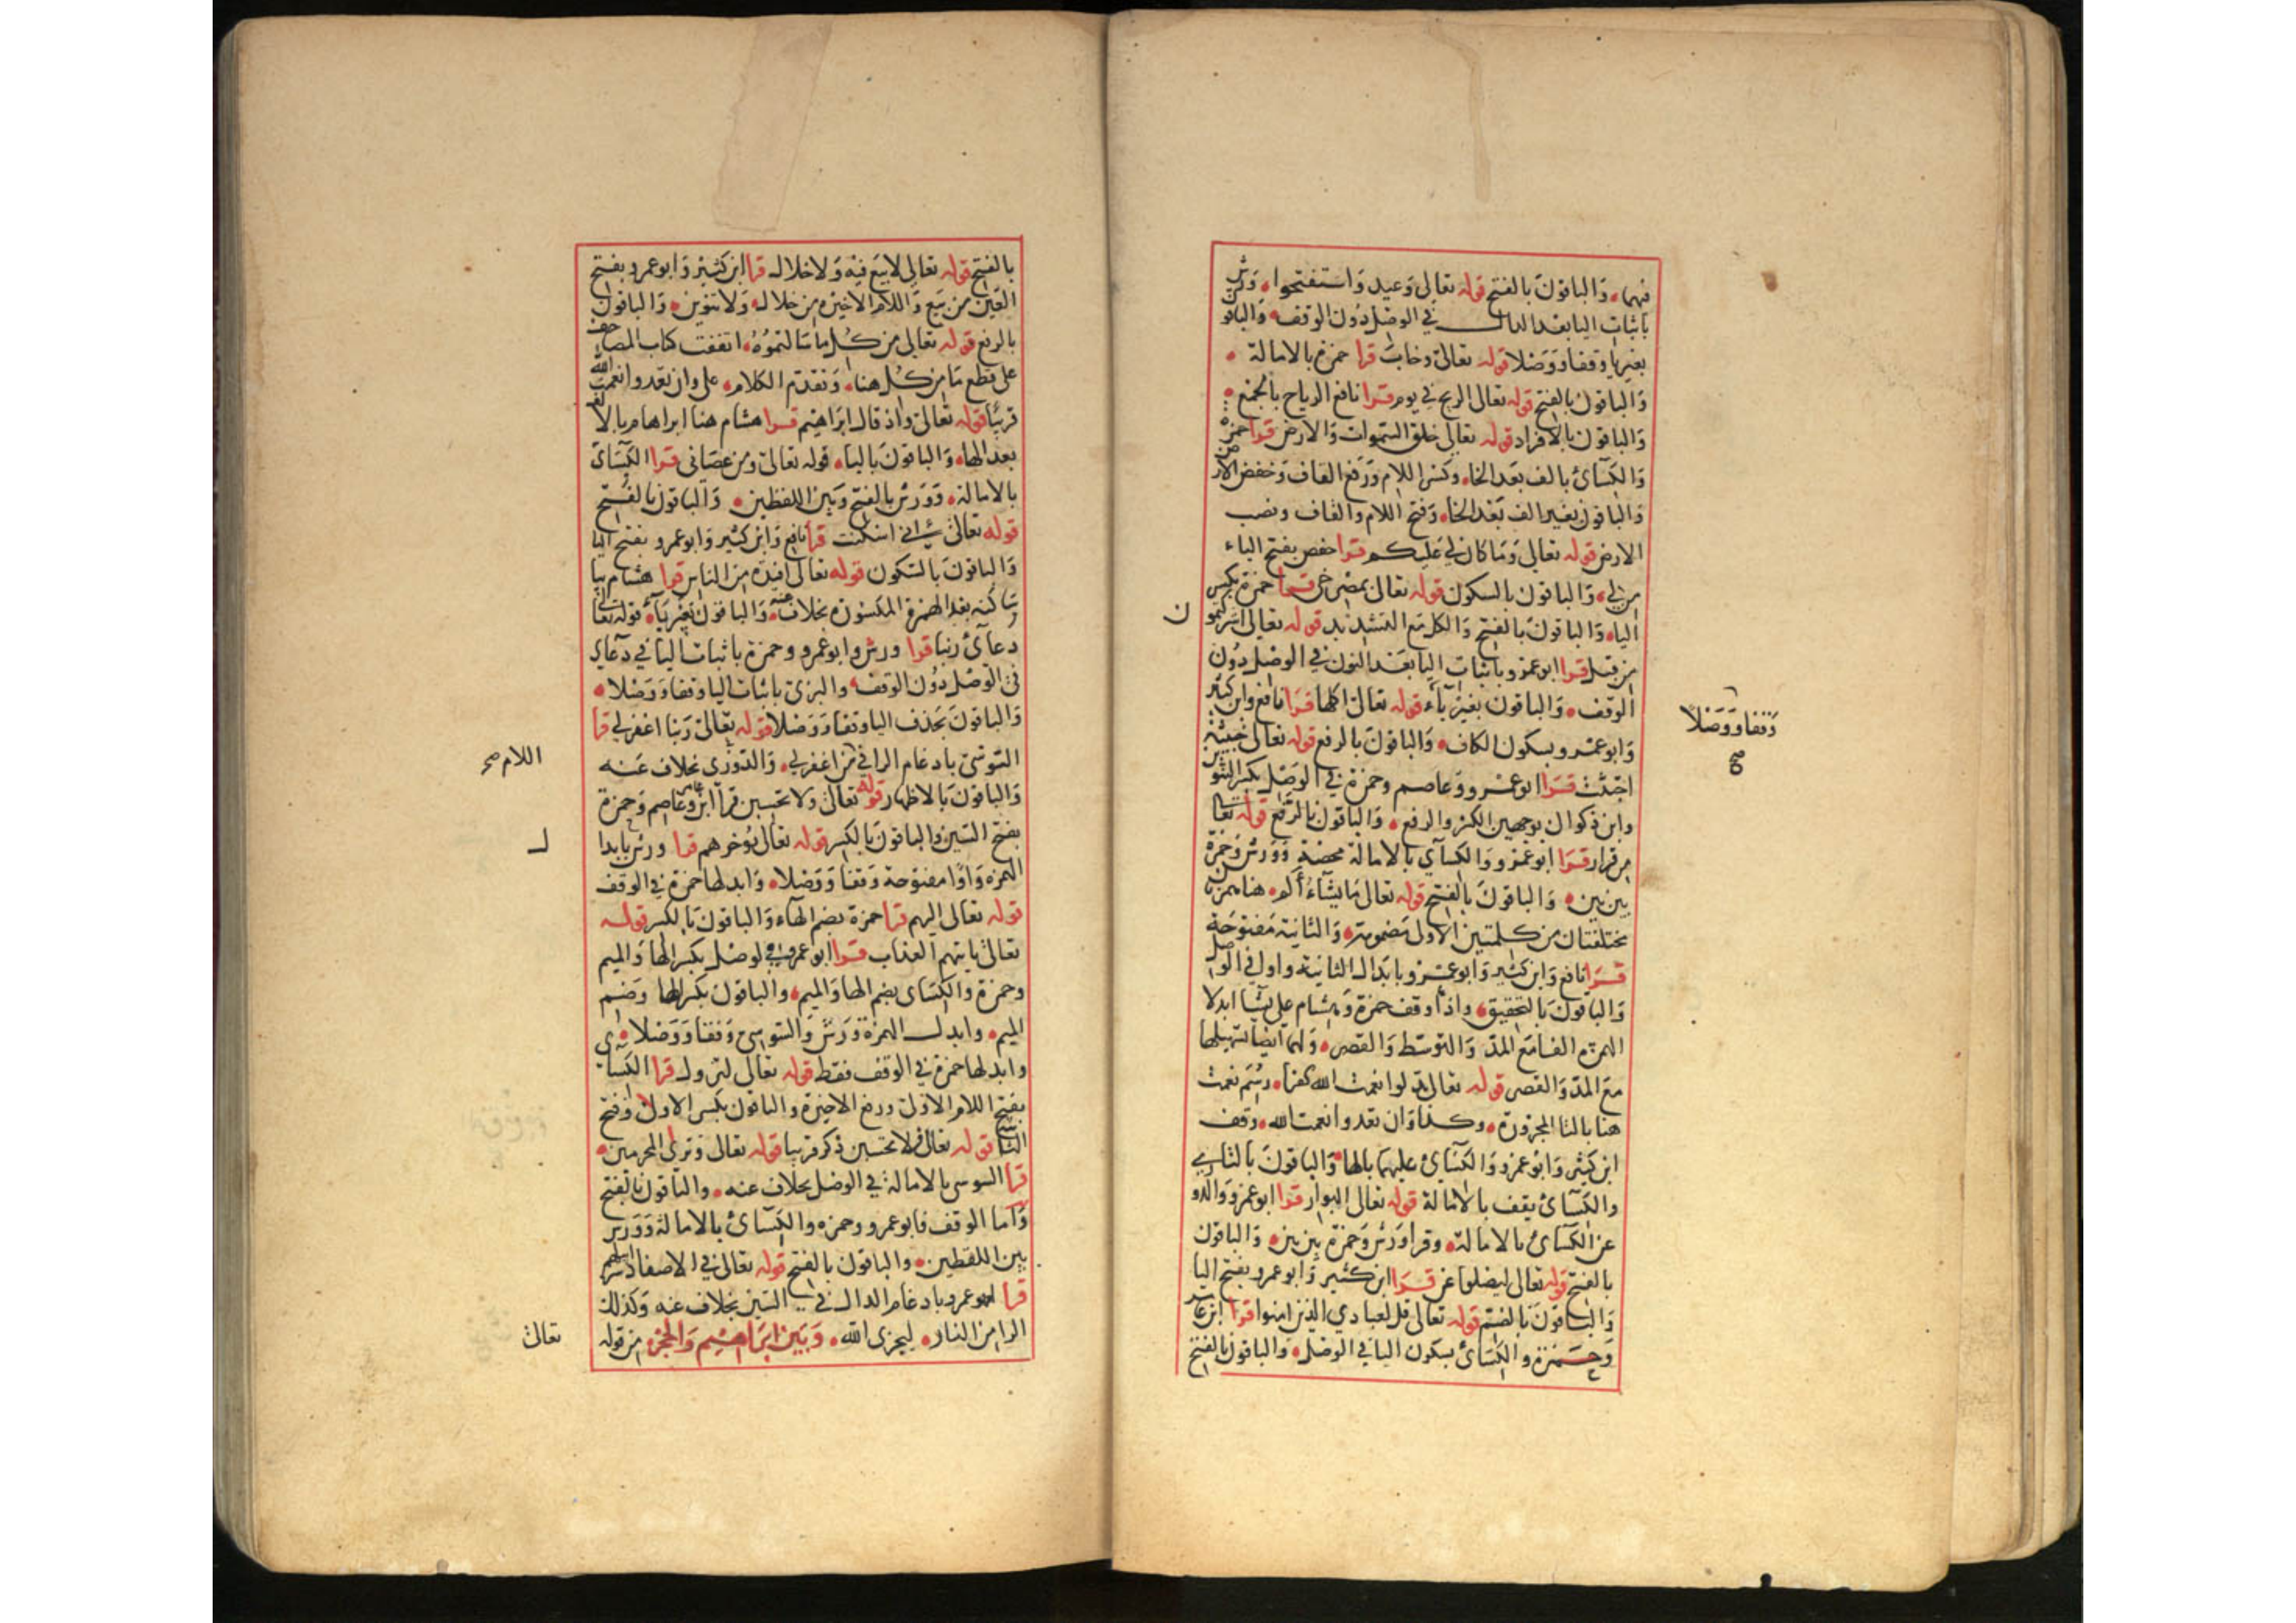 فيهما، وَالباقونَ بالفتح قوله تعالى وَعيد وَاستفتحوا، وَرش
باثبات اليا بعد الدال في الوصل دُون الوقف، وَالباقو
بغير يا وقفا وَوَصْلا قوله تعالى وخابَ قرا حمزة بالامالة،
وَالباقونَ بالفتح قوله تعالى الريح في يوم قرا نافع الرياح بالجمع،
وَالباقون بالافراد قوله تعالى خلق السموات وَالارض قرا حمزة
وَالكسَائ بالف بعد الخا، وكسر اللام وَرَفع القاف وَخفض الارض
وَالباقون بغير الف بَعْد الخا، وَفتح اللام والقاف ونصب
الارض قوله تعالى وَمَا كان لي عَليكم قرا حفص بفتح الياء
من لي، وَالباقون بالسكون قوله تعالى بمصرخي قرا حمزة بكسر
الياء وَالباقونَ بالفتح وَالكل مَع التشديد قوله تعالى اشركتمو
ن
من قبل قرا ابوعمرو باثبات اليا بعَد النون في الوصل دُون
الوقف، وَالباقون بغير يَآء قوله تعالى اكلها قرَا نافع وابن كثير
وَقفا وَوَصْلا
صح
وَابوعمرو بسكون الكاف، وَالباقونَ بالرفع قوله تعالى خبيثة
اجتثت قرَا ابوعمرو وَعاصم وحمزة في الوَصْل بكسر التنوين
وابن ذكوان بوجهين الكسر والرفع، وَالباقون بالرَّفع قوله تعا
من قرار قرَا ابوعمرو وَالكسآي بالامالة محضة وَوَرش وَحمزة
بين بين، وَالباقونَ بالفتح قوله تعالى مَا يشآءُ أَلم، هنا همزتان
مختلفتان من كلمتين الاولى مَضمومة، وَالثانية مَفتوحَة
قرَا نافع وَابن كثير وَابوعمرو بابدال الثانية واوا في الوصل
وَالباقونَ بالتحقيق، واذا وقف حمزة وَهشام على يشا ابدلا
الهمزة الفا مَع المدّ وَالتوسّط وَالقصر، وَلهما ايضا تسهيلها
مَع المدّ وَالقصر قوله تعالى بدلوا نعمت الله كفرا، رسم نعمت
هنا بالتا المجرورة، وكذا وَان تعدوا نعمت الله، وَقف
ابن كثير وَابوعمرو وَالكسَائ عليهما بالها، وَالباقونَ بالتا
والكسَآئ يقف بالامالة قوله تعالى البوار قرا ابوعمرو وَالدو
عن الكسآئ بالامالة، وقرا وَرش وَحمزة بين بين، وَالباقون
بالفتح قوله تعالى ليضلوا عن قرَا ابن كثير وَابوعمرو بفتح اليا
وَالباقونَ بالضم قوله تعالى قل لعبادي الذين امنوا قرا ابن عامر
وَحمزة والكسَائ بسكون اليا في الوصل، وَالباقون بالفتح
بالفتح قوله تعالى لا بَيع فيه وَلا خلال قرا ابن كثير وَابوعمرو بفتح
العَين من بَيع وَاللام الاخيرة من خلال، وَلا تنوين، وَالباقون
بالرفع قوله تعالى من كل ما سَالتموُهُ، اتفقت كتاب المصاحف
على قطع مَا من كل هنا، وَتقدم الكلام، على وان تعدوا نعمت الله
قريبًا قوله تعالى واذ قال ابرَاهيم قرا هشام هنا ابراهام بالالف
بعد الها، وَالباقونَ باليا، قوله تعالى ومن عصَانى قرا الكسَائ
بالامالة، وَوَرش بالفتح وَبين اللفظين، وَالباقون بالفتح
قوله تعالى اني اسكنت قرا نافع وَابن كثير وَابوعمرو بفتح اليا
وَالباقونَ بالسكون قوله تعالى افئدة من الناس قرا هشام بيا
ساكنة بعد الهمزة المكسورة بخلاف عنه، وَالباقون بغير يَآء، قوله تعالى
دعآئ ربنا قرا ورش وابوعمرو وحمزة باثبات اليا في دَعآي
فى الوَصْل دُون الوقف، والبزي باثبات اليا وقفا وَوَصْلا،
وَالباقونَ بحَذف اليا وقفا وَوَصْلا قوله تعالى رَبنا اغفرلي قرا
السّوسَي بادغام الرا في من اغفرلي، وَالدّوري بخلاف عَنه
اللام صح
وَالباقونَ بالاظهار قوله تعالى وَلا تحسبن قرا ابن عامر وَعاصم وَحمزة
بفتح السّين والباقونَ بالكسر قوله تعالى يُؤخرهم قرا ورش بابدا
ل
الهمزه وَاوًا مفتوحة وَقفا وَوَصْلا، وَابدلها حمزة في الوَقف
قوله تعالى اليهم قرا حمزة بضم الهآء وَالباقونَ بالكسر قوله
تعالى ياتيهم العذاب قرا ابوعمرو في الوصْل بكسر الها وَالميم
وحمزة والكسَاى بضم الها وَالميم، والباقونَ بكسر الها وَضم
الميم، وابدل الهمزة وَرَش وَالسّوسي وَقفا وَوَصْلا،
وابدلها حمزة في الوقف فقط قوله تعالى لتزول قرا الكسَائى
بفتح اللام الاوْلى ورفع الاخيرة والباقون بكسر الاولى وَفتح
الثانية قوله تعالى فلا تحسبن ذكر قريبا قوله تعالى وَترى المجرمين،
قرا السوسي بالامالة في الوصْل بخلاف عنه، والباقون بالفتح
وَاما الوقف فابوعمرو وحمزه والكسَائ بالامالة وَوَرش
بين اللفظين، والباقون بالفتح قوله تعالى في الاصفاد سرابيلهم
قرا ابوعمرو بادغام الدال في السّين بخلاف عنه وَكذلك
الرا من النار، ليجزى الله، وَبَين ابرَاهيم وَالحجر، من قوله
تعالى